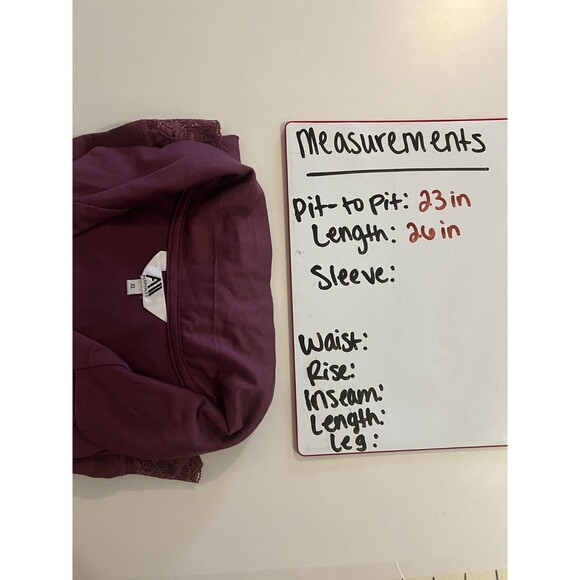 Measurements
Pit-to pit: 23 in
Length: 26 in
Sleeve:
Waist:
Rise:
Inseam:
Length:
Leg:
XL